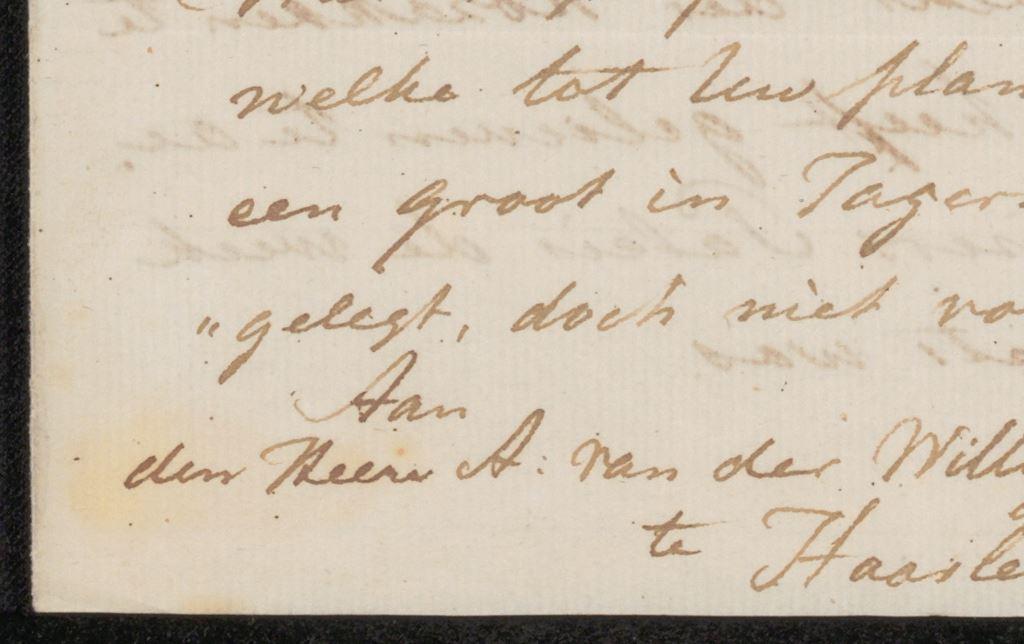 welke tot Uw plan
een groot in Tagers
„gelegt, doch niet vo
Aan
den Heere A: van der Willi
te Haarle